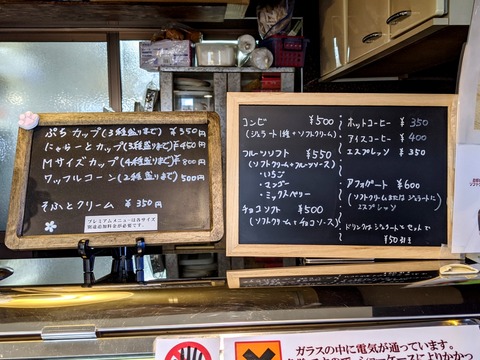 ぷちカップ(3種盛りまで) ¥350円
にゃらーとカップ(3種盛りまで) ¥450円
Mサイズカップ(4種盛りまで) ¥800円
ワッフルコーン(2種盛りまで) 500円
そふとクリーム ¥350円
プレミアムメニューは各サイズ
別途追加料金が必要です。
コンビ ¥500
(ジェラート1種+ソフトクリーム)
フルーツソフト ¥550
(ソフトクリーム+フルーツソース)
・いちご
・マンゴー
・ミックスベリー
チョコソフト ¥500
(ソフトクリーム+チョコソース)
ホットコーヒー ¥350
アイスコーヒー ¥400
エスプレッソ ¥350
アフォガート ¥600
(ソフトクリームまたはジェラートに
エスプレッソ
ドリンクはジェラートとセットで
¥50引き
ガラスの中に電気が通っています。